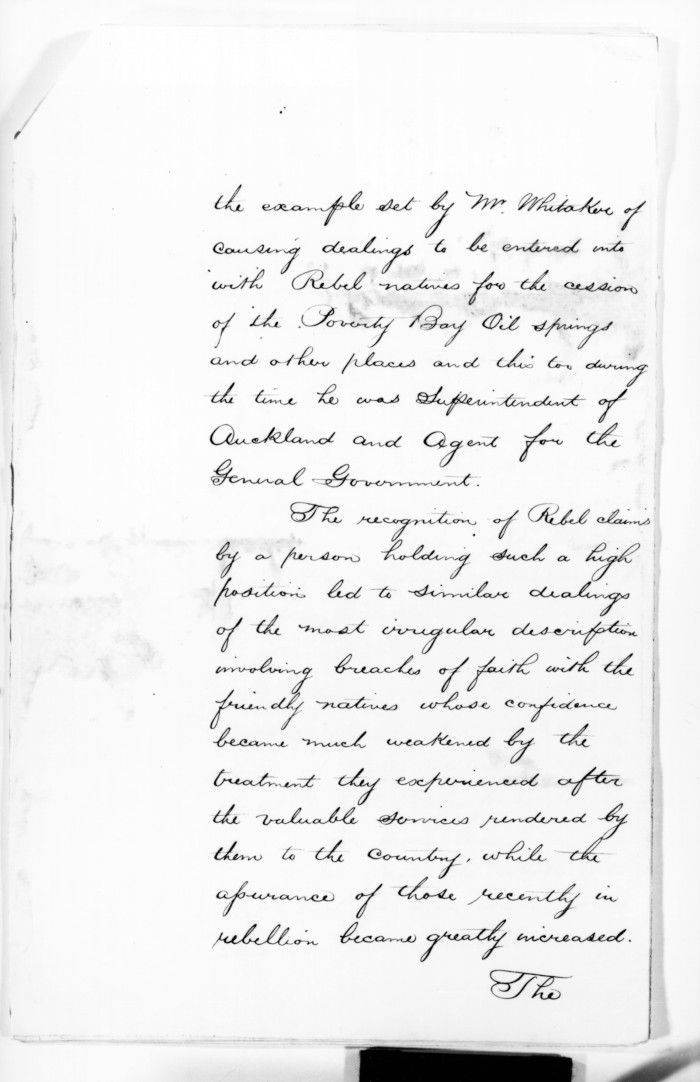 the example set by Mr. Whitaker of
causing dealings to be entered into
with Rebel natives for the cession
of the Poverty Bay Oil springs
and other places and this too during
the time he was Superintendent of
Auckland and Agent for the
General Government.
The recognition of Rebel claims
by a person holding such a high
position led to similar dealings
of the most irregular description
involving breaches of faith with the
friendly natives whose confidence
became much weakened by the
treatment they experienced after
the valuable services rendered by
them to the country, while the
assurance of those recently in
rebellion became greatly increased.
The